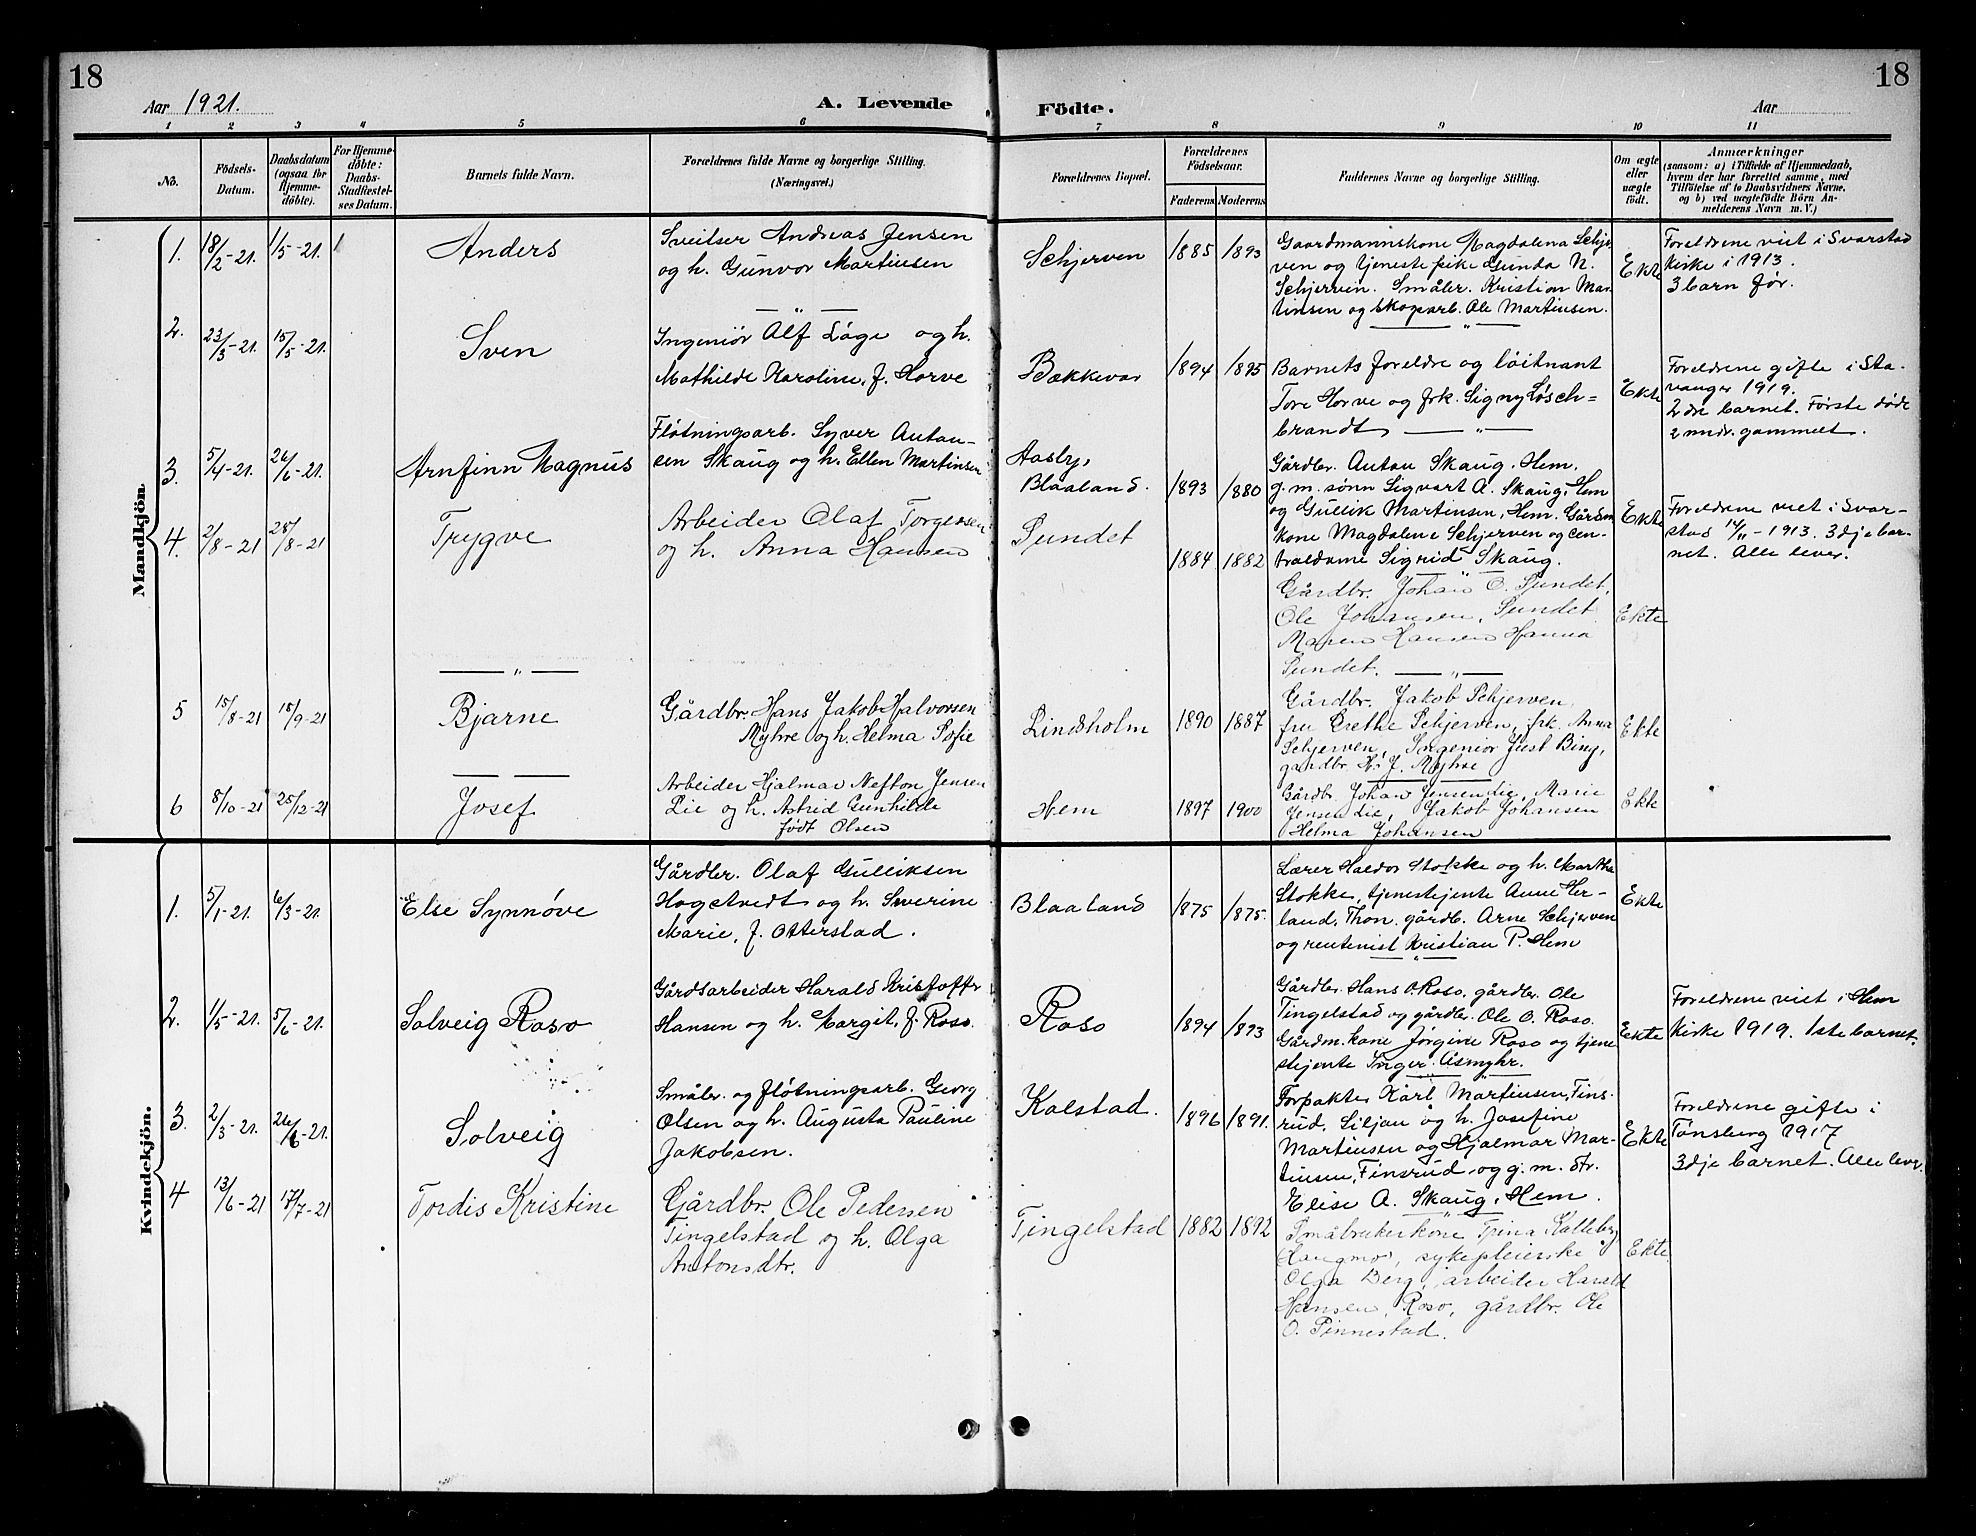 18
18
Aar 1921.
A. Levende
Födte.
Aar
1 2 3 4 5 6 7 8 9 10 11
No.
Födsels-
Datum.
Daabsdatum
(ogsaa for
Hjemme-
döbte).
For Hjemme-
döbte:
Daabs-
Stadfæstel-
ses Datum.
Barnets fulde Navn.
Forældrenes fulde Navne og borgerlige Stilling.
(Næringsvei.)
Forældrenes Bopæl.
Forældrenes
Födselsaar.
Faderens
Moderens
Faddernes Navne og borgerlige Stilling.
Om ægte
eller
uægte
født.
Anmærkninger
(saasom: a) i Tilfælde af Hjemmedaab,
hvem der har forrettet samme, med
Tilföielse af to Daabsvidners Navne,
og b) ved uægtefödte Börn An-
melderens Navn m. V.)
Mandkjön
1. 18/2-21. 1/5-21. Anders
Sveitser Andreas Jensen
og h. Gunvor Martinsen
Schjerven
1885 1893
Gaardmannskone Magdalena Schjer
ven og tjenestepike Gunda N.
Schjerven. Småbr. Kristian Mar
tinsen og skogarb. Ole Martinsen.
Ekte
Foreldrene viet i Svarstad
kirke i 1913.
3 barn før.
2. 23/3-21. 15/5-21. Sven
Ingeniör Alf Låge og h.
Mathilde Karoline, f. Horve
Bækkevar
1894 1895
Barnets foreldre og löitnant
Tore Horve og frk. Signy Løsch=
brandt
Ekte
Foreldrene gifte i Sta-
vanger 1919.
2dre barnet. Förste døde
2 mndr. gammelt.
3. 5/4-21. 26/6-21. Arnfinn Magnus
Fløtningsarb. Syver Anton-
sen Skaug og h. Ellen Martinsen
Aasby,
Blaaland.
1893 1880
Gårdbr. Anton Skaug, Hem.
g.m. sønn Sigvart A. Skaug, Hem
og Gullik Martinsen, Hem. Gårdm
kone Magdalene Schjerven og cen-
traldame Sigrid Skaug.
Ekte
Foreldrene viet i Svar-
stad 14/11-1913. 3dje bar-
net. Alle lever.
4. 2/8-21 28/8-21 Trygve
Arbeider Olaf Torgersen
og h. Anna Hansen
Sundet
1884 1882
Gårdbr. Johan O. Sundet,
Ole Johansen, Sundet
Maren Hansen Hanna
Sundet.
Ekte
5 15/8-21 18/9-21 Bjarne
Gårdbr. Hans Jakob Halvorsen
Myhre og h. Helma Sofie
Lindsholm
1890 1887
Gårdbr. Jakob Schjerven,
fru Grethe Schjerven, frk. Anna
Schjerven, Ingeniör Just Bing,
gardbr. H. J. Myhre
Ekte
6 8/10-21 25/12-21 Josef
Arbeider Hjalmar Nefton Jensen
Lie og h. Astrid Gunhilde
født Olsen
Hem
1897 1900
Gårdbr Johan Jensen Lie, Marie
Jensen Lie, Jakob Johansen
Helma Johansen
Ekte
Kvindekjön.
1. 5/1-21. 6/3-21. Else Synnöve
Gårdbr. Olaf Gulliksen
Hogstvedt og h. Severine
Marie, f. Otterstad.
Blaaland
1875 1875.
Lærer Haldor Stokke og h. Martha
Stokke, tjenestejente Anne Her-
land, Thon, gårdb. Arne Schjerven
og rentenist Kristian P. Hem
Ekte
2. 1/5-21. 5/6-21. Solveig Raso
Gårdsarbeider Harald Kristoffer
Hansen og h. Margit, f. Raso.
Raso
1894 1893
Gårdbr. Hans O. Raso, gårdbr. Ole
Tingelstad og gårdbr. Ole O. Raso.
Gårdm. kone Jørgine Raso og tjene
stejente Inger Åsmyhr.
Ekte
Foreldrene viet i Hem
kirke 1919. 1ste barnet.
3. 2/3-21. 26/6-21. Solveig
Småbr. og fløtningsarb. Georg
Olsen og h. Augusta Pauline
Jakobsen.
Kalstad.
1896 1891.
Forpakter Karl Martinsen, Fins-
rud, Siljan og h. Josefine
Martinsen og Hjalmar Mar-
tinsen, Finsrud, og g. m. dtr.
Elise A. Skaug, Hem.
Ekte
Foreldrene gifte i
Tønsberg 1917
3dje barnet. Alle lever.
4 13/6-21 17/7-21 Tordis Kristine
Gårdbr. Ole Pedersen
Tingelstad og h. Olga
Antonsdtr.
Tingelstad
1882 1892
Småbrukerkone Trina Kalleberg,
Haugmo, sykepleierske
Olga Berg, arbeider Harald
Hansen, Raso, gårdbr. Ole
O. Sinnestad.
Ekte